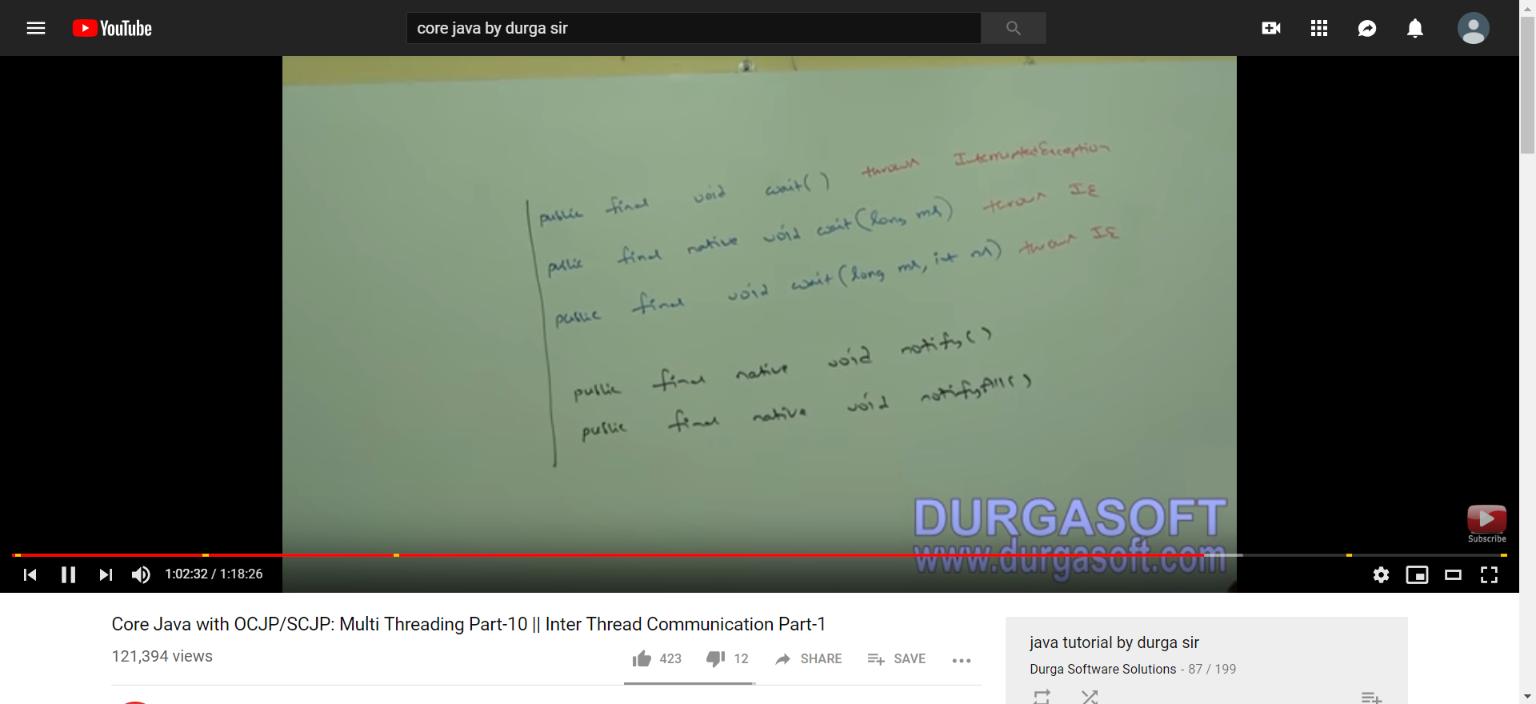 YouTube
core java by durga sir
public final void wait() throws InterruptedException
public final native void wait(long ms) throws IE
public final void wait(long ms, int ns) throws IE
public final native void notify()
public final native void notifyAll()
DURGASOFT
www.durgasoft.com
Subscribe
1:02:32 / 1:18:26
Core Java with OCJP/SCJP: Multi Threading Part-10 || Inter Thread Communication Part-1
121,394 views
423
12
SHARE
SAVE
java tutorial by durga sir
Durga Software Solutions - 87 / 199